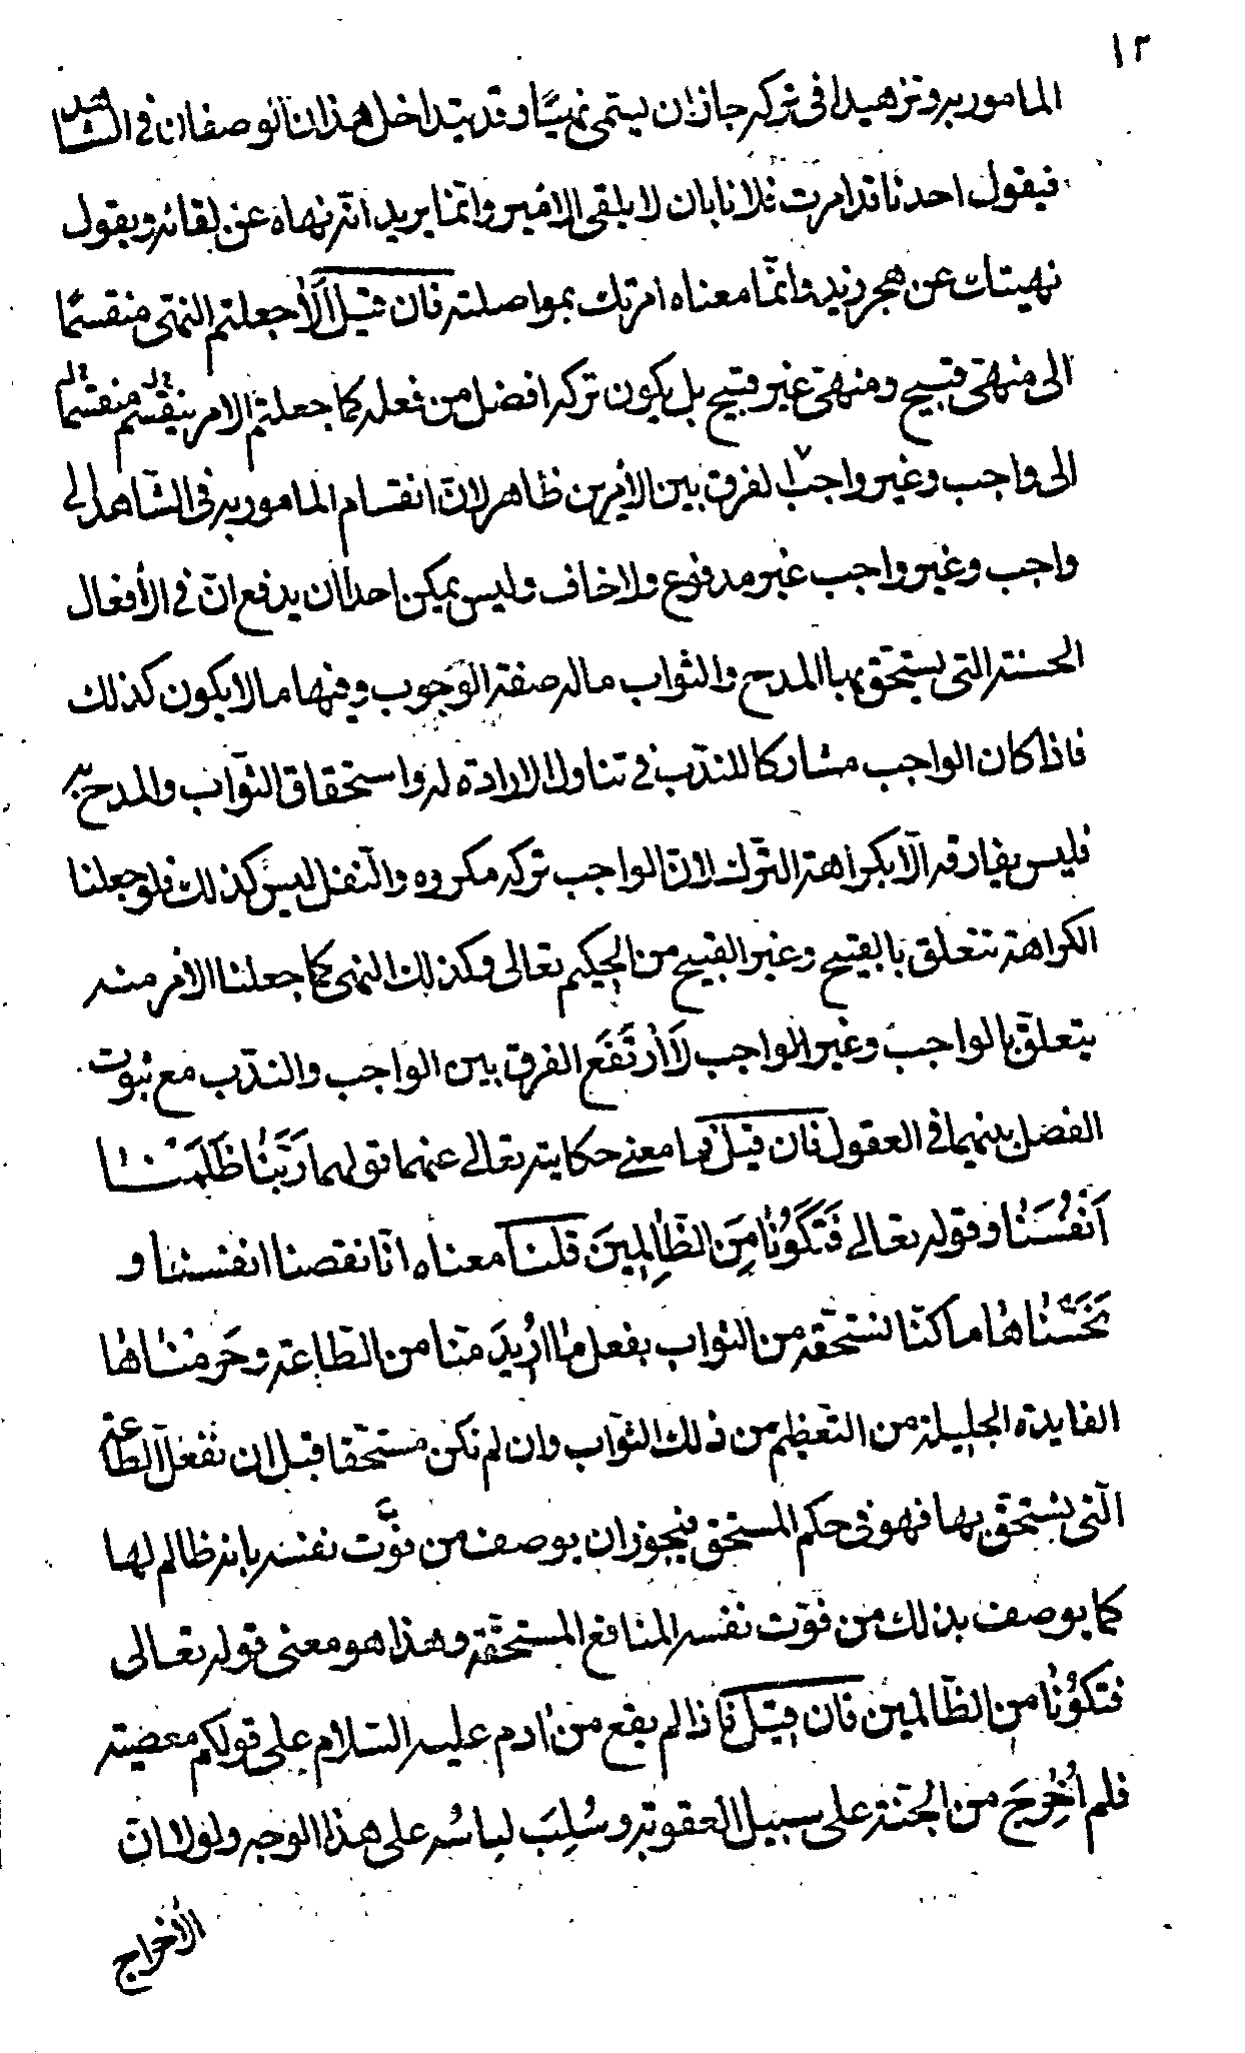 ١٢
المامور به وتزهيدا فى تركه جاز ان يسمى نهيًا وقد يتداخل هذان الوصفان فى الشاهد
فيقول احدنا قد امرت فلانا بان لا يلقى الامير وانّما يريد انّه نهاه عن لقائه ويقول
نهيتك عن هجر زيد وانّما معناه امرتك بمواصلته فان قيل الّا جعلتم النهى منقسمًا
الى منهىّ قبيح ومنهىّ غير قبيح بل يكون تركه افضل من فعله كما جعلتم الامر ينقسم منقسما
الى واجب وغير واجب الفرق بين الأمرين ظاهر لانّ انقسام المامور به فى الشّاهد الى
واجب وغير واجب غير مدفوع ولا خاف وليس يمكن احدا ان يدفع انّ فى الأفعال
الحسنة التى يستحّق بها المدح والثواب ماله صفة الوجوب وفيها ما لا يكون كذلك
فاذا كان الواجب مشاركا للندّب فى تناول الارادة له واستحقاق الثوّاب والمدح به
فليس يفارقه الّا بكراهة الترّك لانّ الواجب تركه مكروه والنّفل ليس كذلك فلو جعلنا
الكراهة تتعلق بالقبيح وغير القبيح من الحكيم تعالى وكذلك النهى كما جعلنا الامر منه
يتعلّق بالواجب وغير الواجب لَارْتَفَع الفرق بين الواجب والندّب مع ثبوت
الفضل بينهما فى العقول فان قيل فما معنے حكايته تعالے عنهما قولهما رَبَّنٰا ظَلَمْنٰا
اَنْفُسَنٰا وقوله تعالے فَتَكُونٰا مِنَ الظّٰالِمِينَ قلنا معناه انّا نقصنا انفسنا و
بَخَسْنٰاهٰا ما كنّا نستحقّه من الثواب بفعل مٰا اُرِيدَ منّا من الطّاعة وحَرَمْنٰاهٰا
الفايدة الجليلة من التّعظيم من ذلك الثوّاب وان لم نكن مستحّقا قبل ان نفعل الطاعة
الّتى يستحّق بها فهو فى حكم المستحق فيجوز ان يوصف من فوَّت نفسه بانه ظالم لها
كما يوصف بذلك من فوّت نفسه المنافع المستحقّة وهذا هو معنى قوله تعالى
فتكونٰا من الظّالمين فان قيل فاذا لم يقع من ادم عليه السّلام على قولكم معصية
فلم اُخْرِجَ من الجنّة على سبيل العقوبة وسُلِبَ لباسُه على هذا الوجه ولولا انّ
الأخراج